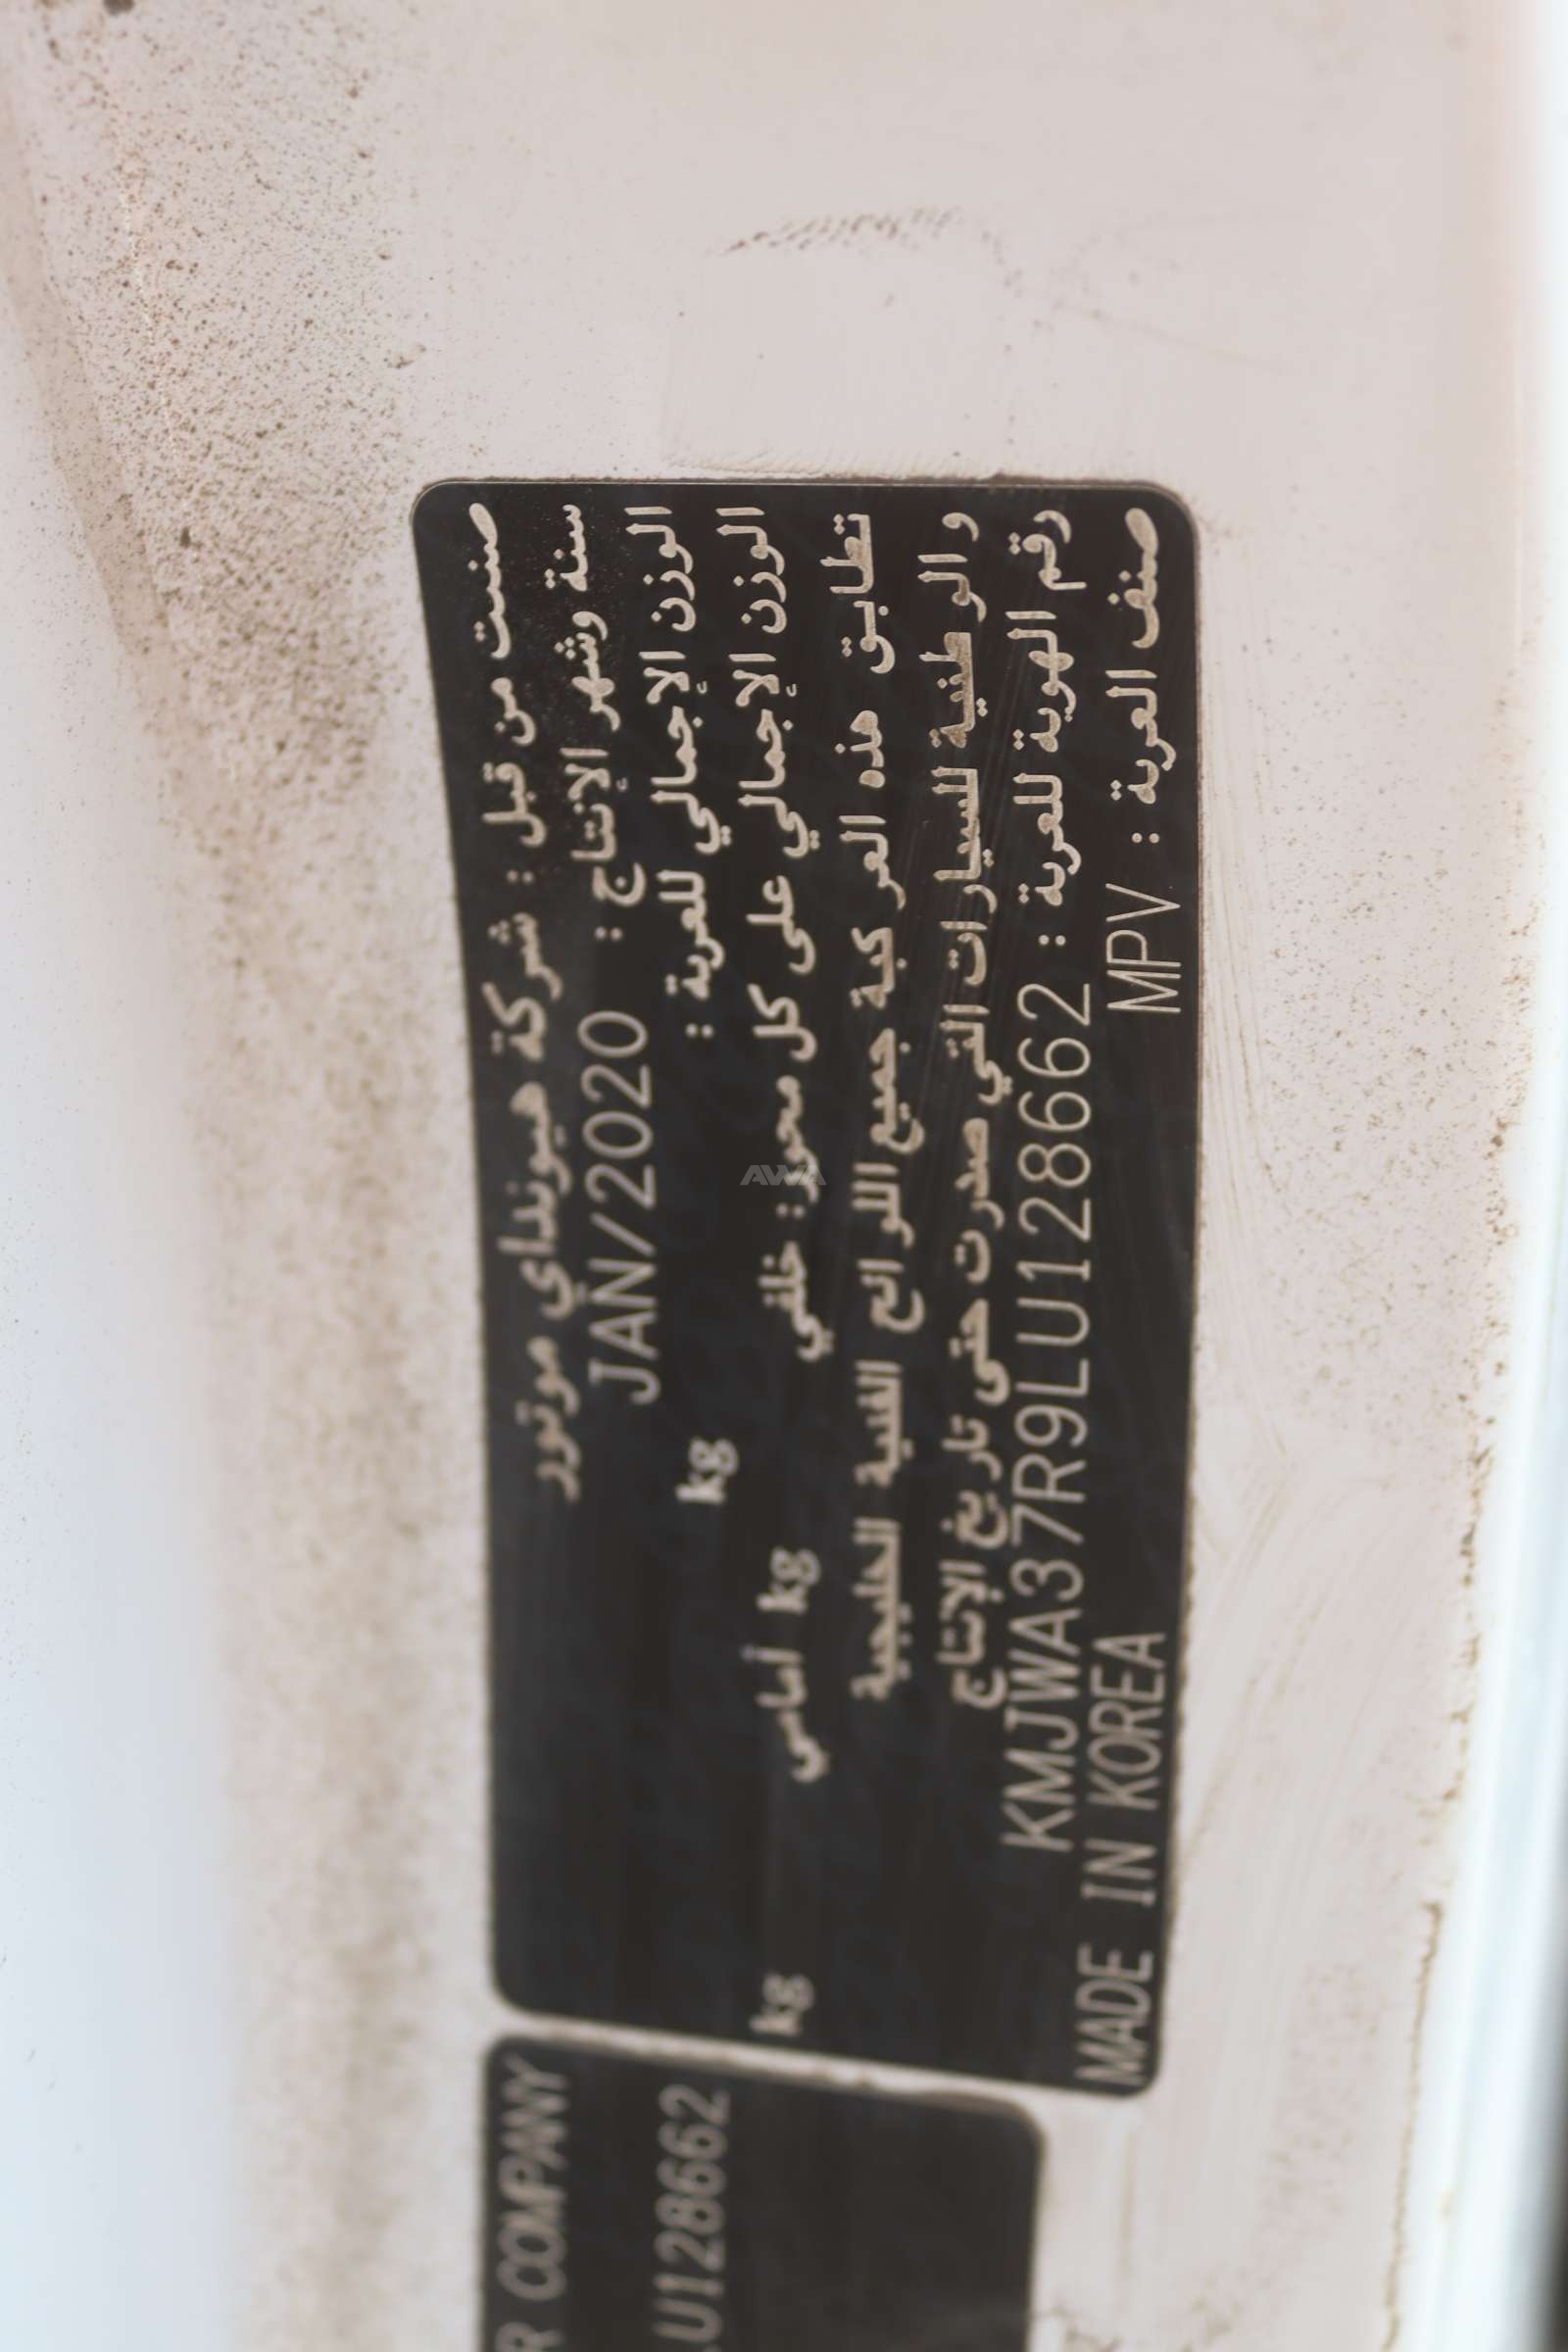 صنعت من قبل : شركة هيونداي موتور
سنة وشهر الإنتاج : JAN/2020
الوزن الإجمالي للعربة : kg
الوزن الإجمالي على كل محور : خلفي kg أمامي kg
تطابق هذه العركبة جميع اللوائح الفنية الخليجية
والوطنية للسيارات التي صدرت حتى تاريخ الإنتاج
رقم الهوية للعربة : KMJWA37R9LU128662
صنف العربة : MPV MADE IN KOREA
R COMPANY
LU128662
AWA